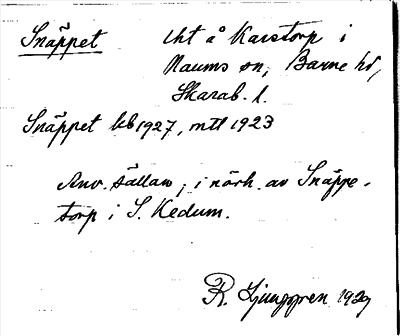 Snäppet
Uht å Karstorp i
Naums sn, Barne hd,
Skarab. l.
Snäppet kb 1927, mtl 1923
Anv. sällan; i närh. av Snäppe-
torp i S. Kedum.
R. Ljunggren 1929